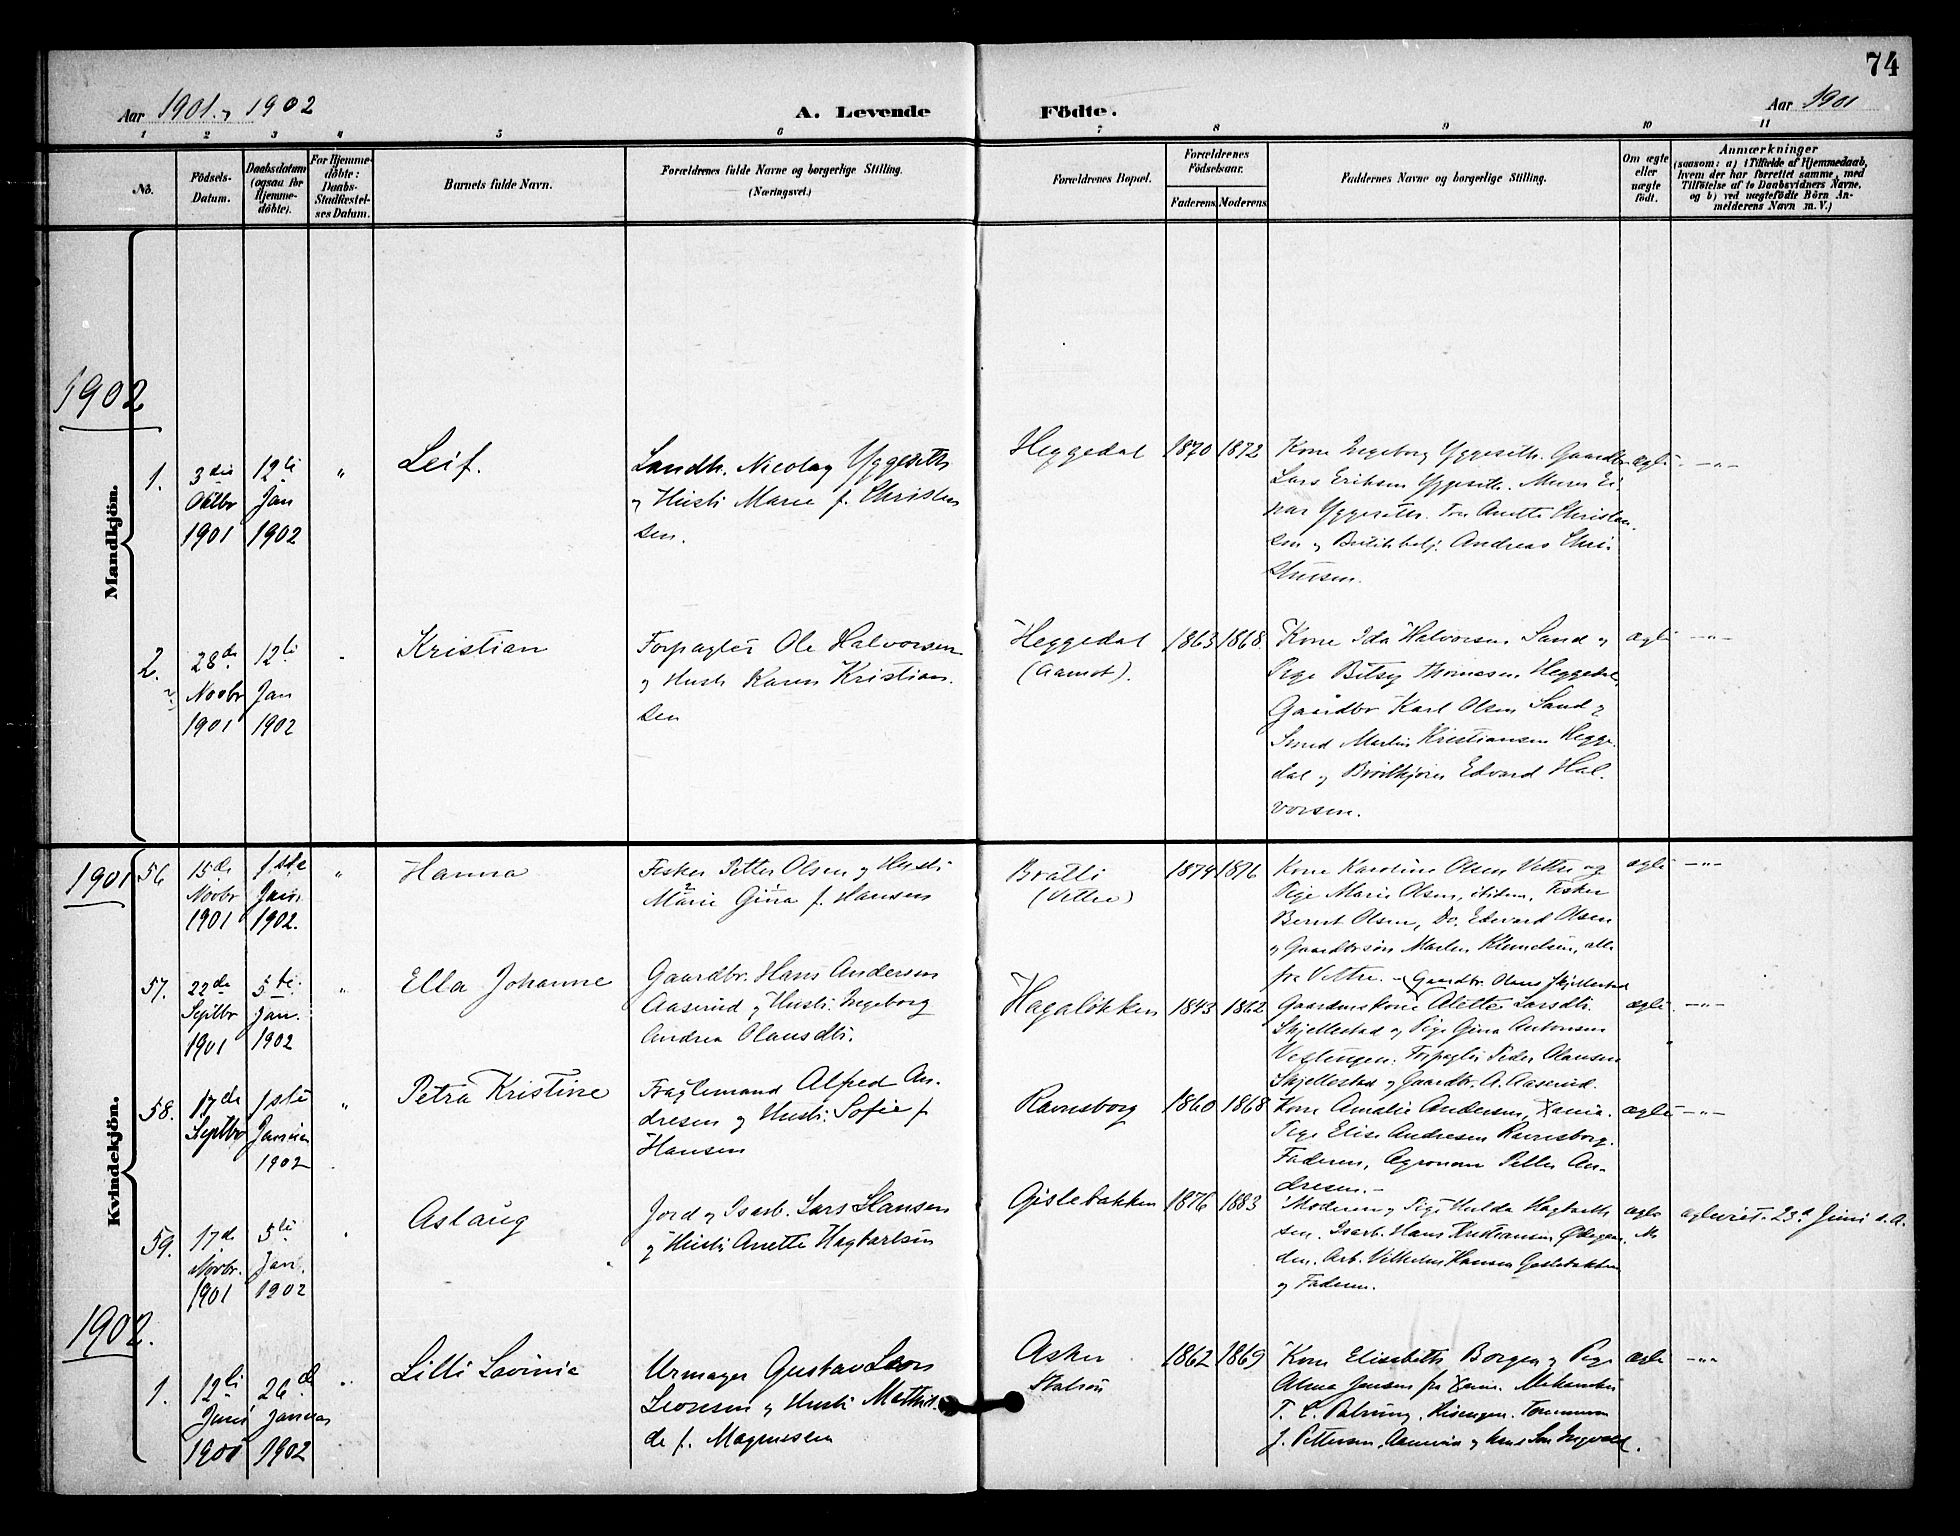 74
Aar 1901, 1902
A. Levende Födte.
Aar 1901
1 2 3 4 5 6 7 8 9 10 11
No.
Födsels-Datum.
Daabsdatum (ogsaa for Hjemmedöbte).
For Hjemmedöbte: Daabs-Stadfæstelses Datum.
Barnets fulde Navn.
Forældrenes fulde Navne og borgerlige Stilling.
(Næringsvei.)
Forældrenes Bopæl.
Forældrenes Födselsaar.
Faderens. Moderens.
Faddernes Navne og borgerlige Stilling.
Om ægte eller uægte födt.
Anmærkninger
(saasom: a) i Tilfælde af Hjemmedaab, hvem der har forrettet samme, med Tilföielse af to Daabsvidners Navne, og b) ved uægtefödte Börn Anmelderens Navn m. V.)
Mandkjön.
1902
1.
3die Oktbr 1901
12te Jan 1902
"
Leif.
Landh. Nicolay Yggeseth
og Hustr Marie f. Christen
sen.
Heggedal
1870 1872
Kone Ingeborg Yggeseth. Gaardbr.
Lars Eriksen Yggeseth. Murer Ei-
nar Yggeseth. Anette Christen
sen og Andreas Chri-
stensen.
ægte
-"-
2.
28de Novbr 1901
12te Jan 1902
Kristian
Forpagter Ole Halvorsen
og Hustr Karen Kristian.
sen
Heggedal
(Aamot).
1863 1868
Kone Ida Halvorsen Sand og
Pige Betsy Thomesen Heggedal,
Gaardbr Karl Olsen Sand og
Smed Martin Kristiansen Hegge
dal og Edvard Hal.
vorsen.
ægte
-"-
Kvindekjön.
1901
56
15de Novbr 1901
1ste Jan. 1902.
"
Hanna
Fisker Petter Olsen og Hustr
Marie Gina f. Hansen
Bratli
(Vettre)
1874 1876
Kone Karoline Olsen Vettre og
Pige Marie Olsen, ibidem, Fisker
Bernt Olsen, Do. Edvard Olsen
og Gaardbrsøn Martin Knudsen, alle
fra Vettre.
ægte
-"-
57.
22de Septbr 1901
5te Jan. 1902
"
Ella Johanne
Gaardbr. Hans Andersen
Aaserud og Hustr. Ingeborg
Andrea Olausdtr.
Hagaløkken
1843 1862
Gaardbr. Olaus Skjellestad
Gaardmskone Alette Larsdtr.
Skjellestad og Pige Gina Antonsen
Forpagter Peder Olausen
Skjellestad og Gaardbr. A. Aaserud.
ægte
-"-
58.
17de Septbr
1ste Januar 1902
"
Petra Kristine
Alfred An-
dresen og Hustr. Sofie f.
Hansen
Ravnsborg
1860 1868
Kone Amalie Andersen, Xania.
Pige Elise Andresen Ravnsborg.
Faderen, Agronom Petter An-
dresen.-
ægte
-"-
59.
17de Novbr. 1901
5te Jan. 1902
Aslaug
Jord og Isarb. Lars Hansen
og Hustr. Anette Hagbartsen
Gislebakken
1876 1883
Moderen og Pige Hulda Hagbarth
sen. Isarb. Hans Kristiansen Ødegaar
den. Arb. Vilhelm Hansen Gislebakken
og Faderen.
ægte
23de Juni s. A.
1902.
1.
12te 1901
26de Januar 1902
Lilli Lavinia
Urmager Gustav Leon
Leonsen og Hustr. Mathil.
de f. Magnussen
Asker
Station
1862 1869
Kone Elisabeth Borgen og Pige
Alma Jensen fra Xania. Mekaniker
J. Pettersen, og
ægte
-"-